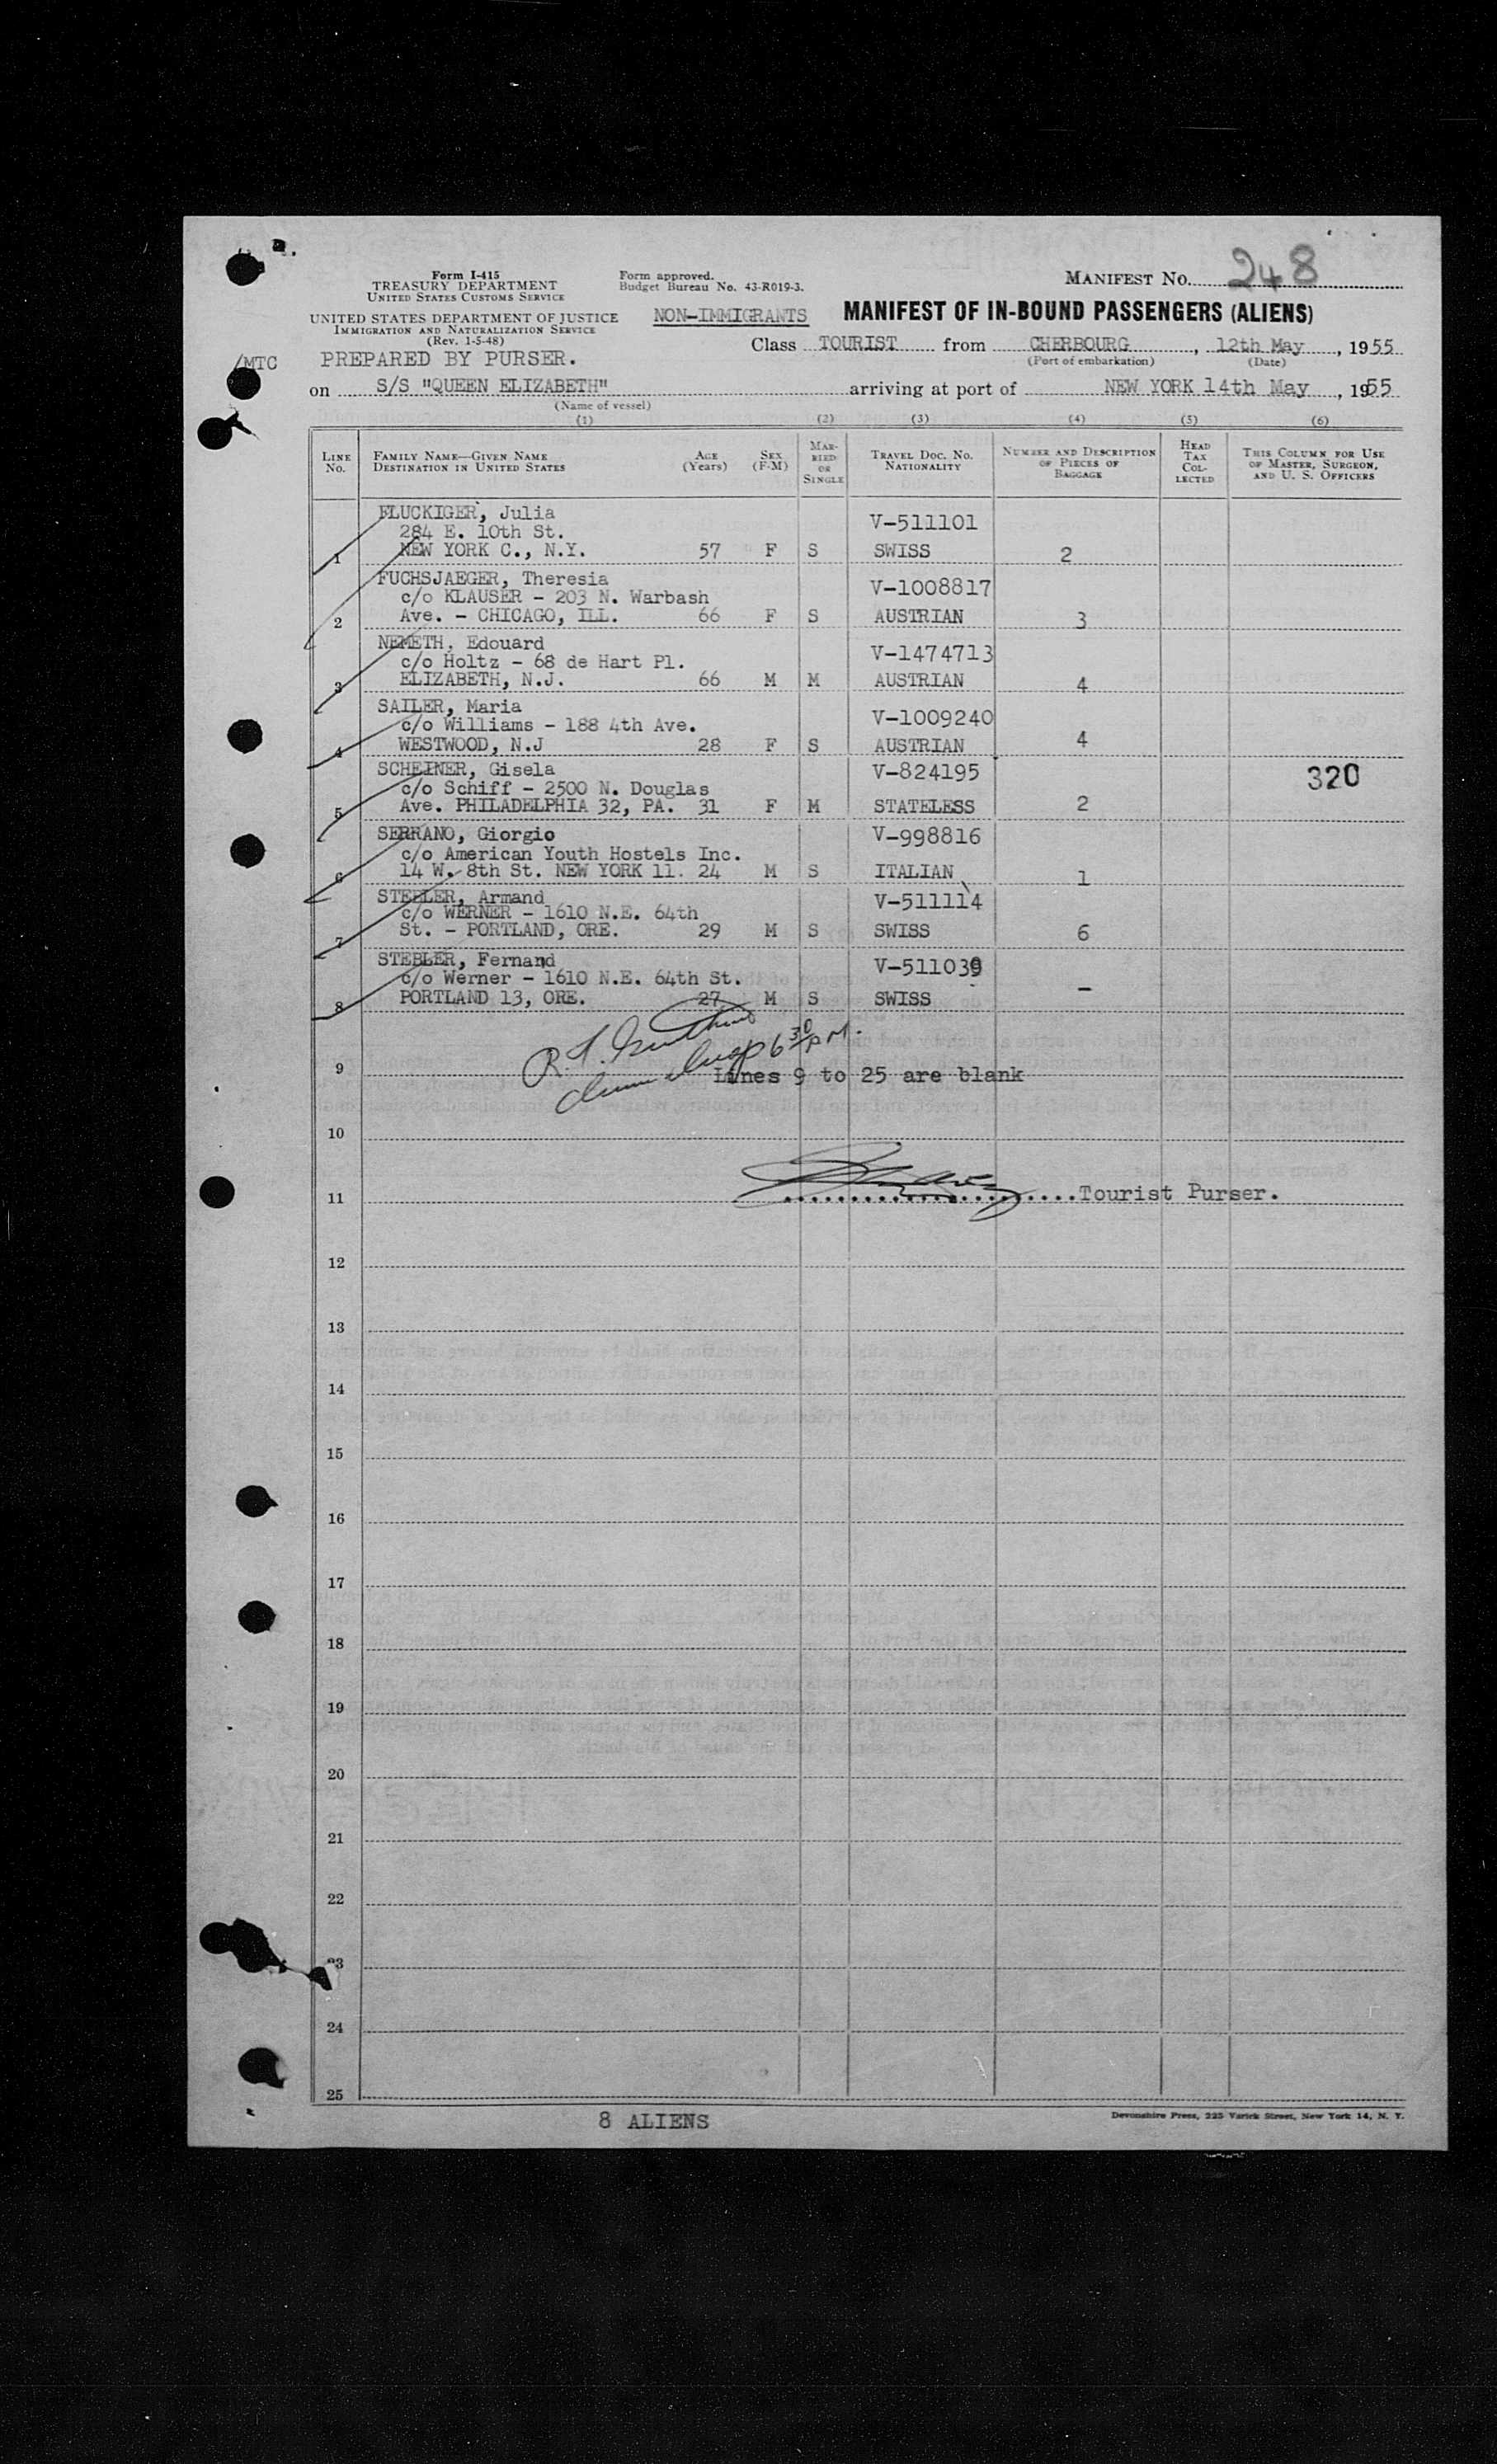 Form I-415
TREASURY DEPARTMENT
UNITED STATES CUSTOMS SERVICE
UNITED STATES DEPARTMENT OF JUSTICE
IMMIGRATION AND NATURALIZATION SERVICE
(Rev. 1-5-48)
Form approved.
Budget Bureau No. 43-R019-3.
MANIFEST No. 248
NON-IMMIGRANTS MANIFEST OF IN-BOUND PASSENGERS (ALIENS)
/MTC PREPARED BY PURSER. Class TOURIST from CHERBOURG, 12th May, 1955
(Port of embarkation) (Date)
on S/S "QUEEN ELIZABETH" arriving at port of NEW YORK 14th May, 1955
(Name of vessel)
(1) (2) (3) (4) (5) (6)
LINE No. FAMILY NAME—GIVEN NAME DESTINATION IN UNITED STATES AGE (Years) SEX (F-M) MARRIED OR SINGLE TRAVEL DOC. NO. NATIONALITY NUMBER AND DESCRIPTION OF PIECES OF BAGGAGE HEAD TAX COLLECTED THIS COLUMN FOR USE OF MASTER, SURGEON, AND U. S. OFFICERS
FLUCKIGER, Julia V-511101
284 E. 10th St.
1 NEW YORK C., N.Y. 57 F S SWISS 2
FUCHSJAEGER, Theresia V-1008817
c/o KLAUSER - 203 N. Warbash
2 Ave. - CHICAGO, ILL. 66 F S AUSTRIAN 3
NEMETH, Edouard V-1474713
c/o Holtz - 68 de Hart Pl.
3 ELIZABETH, N.J. 66 M M AUSTRIAN 4
SAILER, Maria V-1009240
c/o Williams - 188 4th Ave.
4 WESTWOOD, N.J 28 F S AUSTRIAN 4
SCHEINER, Gisela V-824195 320
c/o Schiff - 2500 N. Douglas
5 Ave. PHILADELPHIA 32, PA. 31 F M STATELESS 2
SERRANO, Giorgio V-998816
c/o American Youth Hostels Inc.
6 14 W. 8th St. NEW YORK 11. 24 M S ITALIAN 1
STEBLER, Armand V-511114
c/o WERNER - 1610 N.E. 64th
7 St. - PORTLAND, ORE. 29 M S SWISS 6
STEBLER, Fernand V-511039
c/o Werner - 1610 N.E. 64th St.
8 PORTLAND 13, ORE. 27 M S SWISS -
6 30 PM.
9 Lines 9 to 25 are blank
10
11 Tourist Purser.
12
13
14
15
16
17
18
19
20
21
22
23
24
25
8 ALIENS
Devonshire Press, 225 Varick Street, New York 14, N. Y.